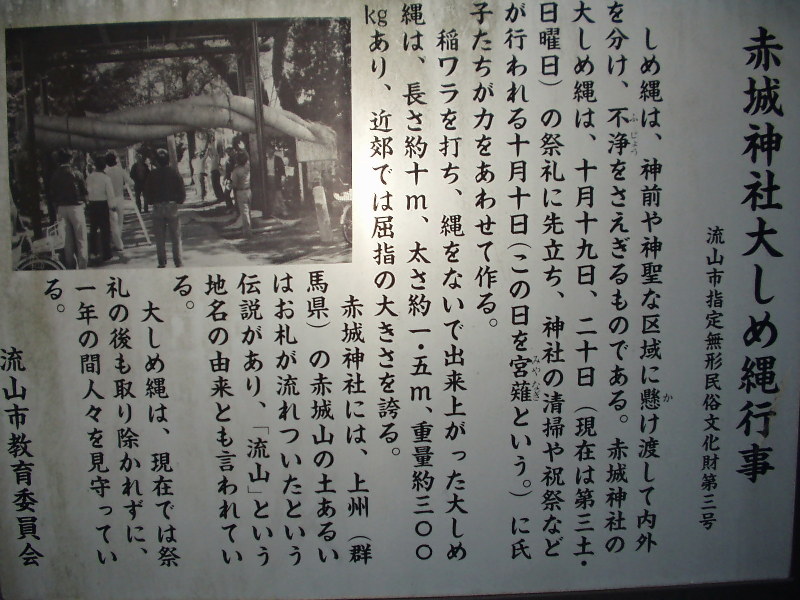 赤城神社大しめ縄行事
流山市指定無形民俗文化財第三号
しめ縄は、神前や神聖な区域に懸け渡して内外
か
を分け、不浄をさえぎるものである。赤城神社の
ふじょう
大しめ縄は、十月十九日、二十日（現在は第三土・
日曜日）の祭礼に先立ち、神社の清掃や祝祭など
が行われる十月十日（この日を宮薙という。）に氏
みやなぎ
子たちが力をあわせて作る。
稲ワラを打ち、縄をないで出来上がった大しめ
縄は、長さ約十ｍ、太さ約一・五ｍ、重量約三〇〇
㎏あり、近郊では屈指の大きさを誇る。
赤城神社には、上州（群
馬県）の赤城山の土あるい
はお札が流れついたという
伝説があり、「流山」という
地名の由来とも言われてい
る。
大しめ縄は、現在では祭
礼の後も取り除かれずに、
一年の間人々を見守ってい
る。
流山市教育委員会